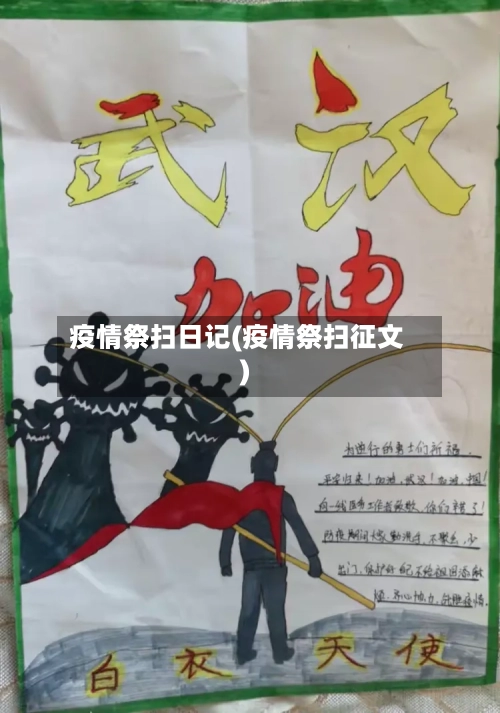 武汉
加油
疫情祭扫日记(疫情祭扫征文
)
为逆行的勇士们祈福.
平安归来!加油,武汉!加油,中国!
向一线医务工作者致敬,你们辛苦了!
防疫期间大家勤洗手,不聚会,少
出门,保护好自己不给祖国添麻
烦.齐心协力,战胜疫情.
白衣天使